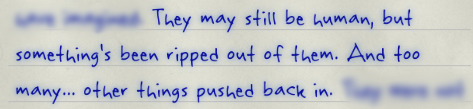 They may still be human, but
something's been ripped out of them. And too
many... other things pushed back in.